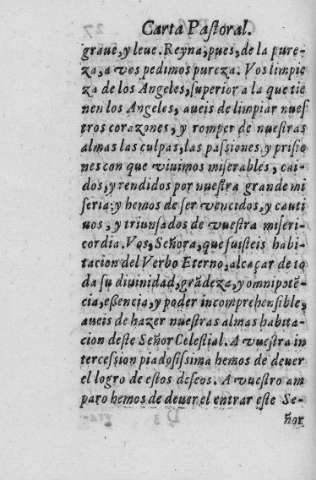 Carta Pastoral.
graue, y leue. Reyna, pues, de la pure-
za, a vos pedimos pureza. Vos limpie
za de los Angeles, superior a la que tie
nen los Angeles, aueis de limpiar nues
tros corazones, y romper de nuestras
almas las culpas, las passiones, y prisio
nes con que viuimos miserables, cai-
dos, y rendidos por nuestra grande mi
seria: y hemos de ser vencidos, y cauti
uos, y triunfados de vuestra miseri-
cordia. Vos, Señora, que fuisteis habi-
tacion del Verbo Eterno, alcaçar de to
da su diuinidad, grãdeza, y omnipotẽ-
cia, essencia, y poder incomprehensible,
aueis de hazer nuestras almas habita-
cion deste Señor Celestial. A vuestra in
tercession piadosissima hemos de deuer
el logro de estos deseos. A vuestro am
paro hemos de deuer el entrar este Se-
ñor